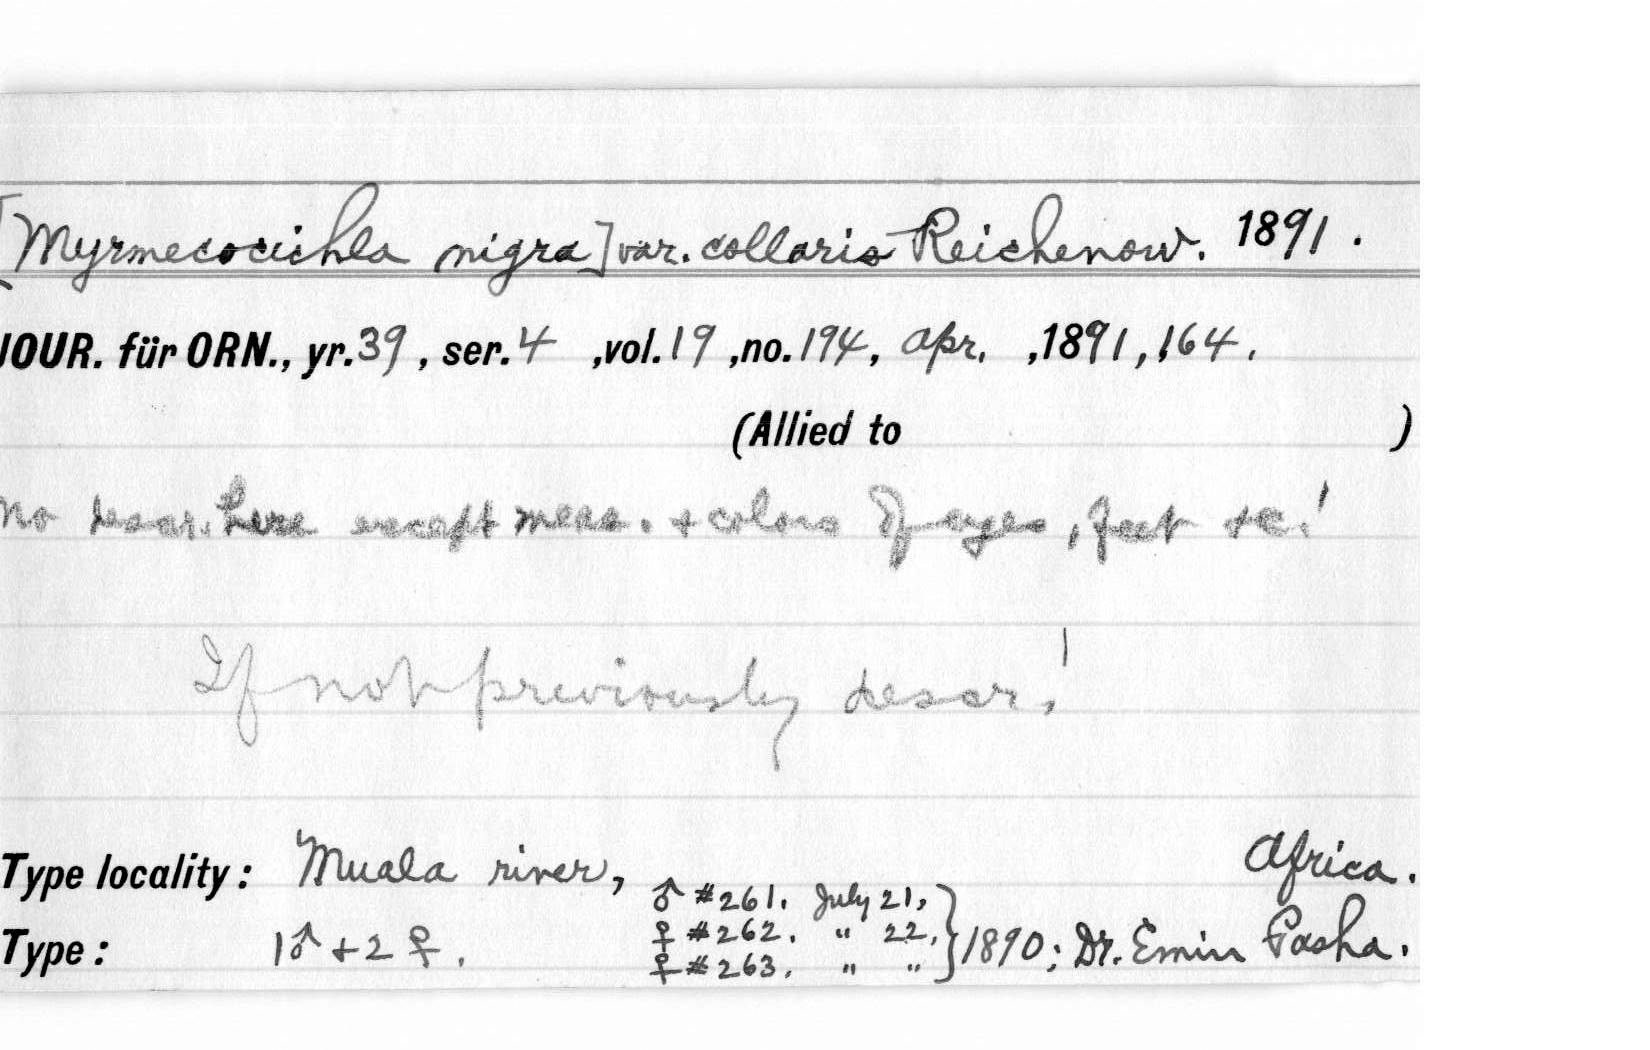 [Myrmecocichla nigra] var. collaris Reichenow. 1891.
JOUR. für ORN., yr. 39, ser. 4, vol. 19, no. 194, Apr., 1891, 164.
(Allied to )
No descr. here except meas. + colors of eyes, feet &c.!
If not previously descr.!
Type locality: Muala river, Africa.
♂ #261. July 21,
Type: 1♂ + 2♀. ♀ #262. " 22, } 1890; Dr. Emin Pasha.
♀ #263. " "